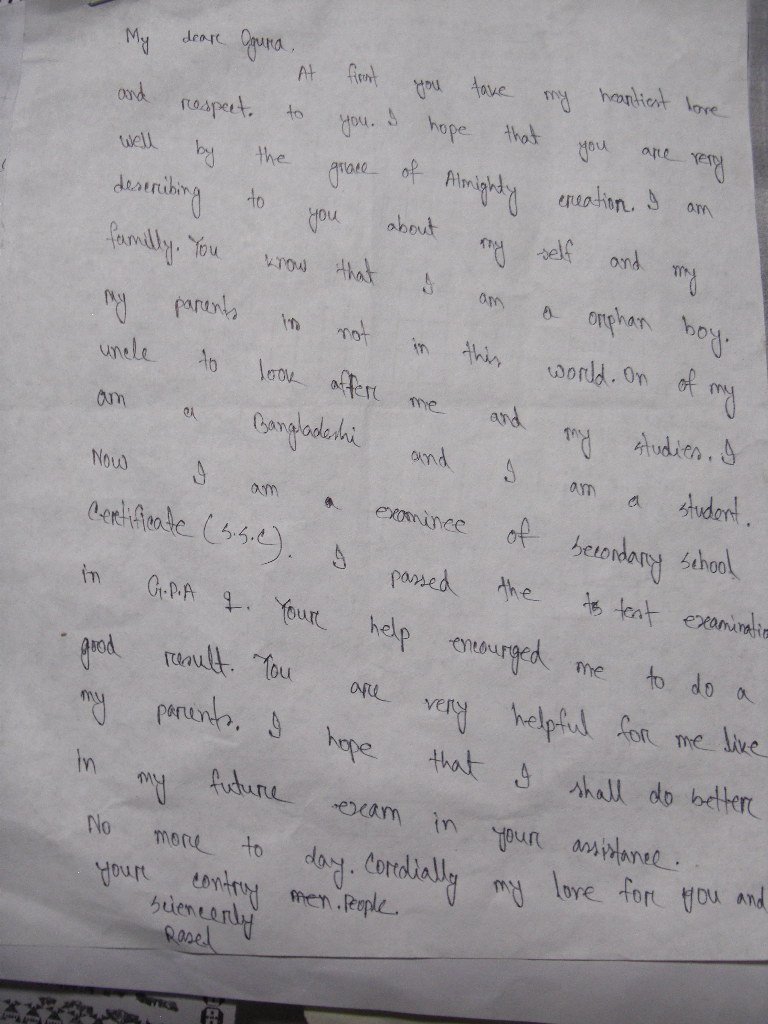 My dear Ogura,
At first you take my heartiest love
and respect. to you. I hope that you are very
well by the grace of Almighty creation. I am
describing to you about my self and my
familly. You know that I am a orphan boy.
My parents in not in this world. On of my
uncle to look affer me and my studies. I
am a Bangladeshi and I am a student.
Now I am a examinee of Secondary School
Certificate (S.S.C). I passed the test examinatio
in G.P.A Your help encourged me to do a
good result. You are very helpful for me like
my parents. I hope that I shall do better
in my future exam in your assistance.
No more to day. Coredially my love for you and
your contry men. People.
Sciencerly
Rasel